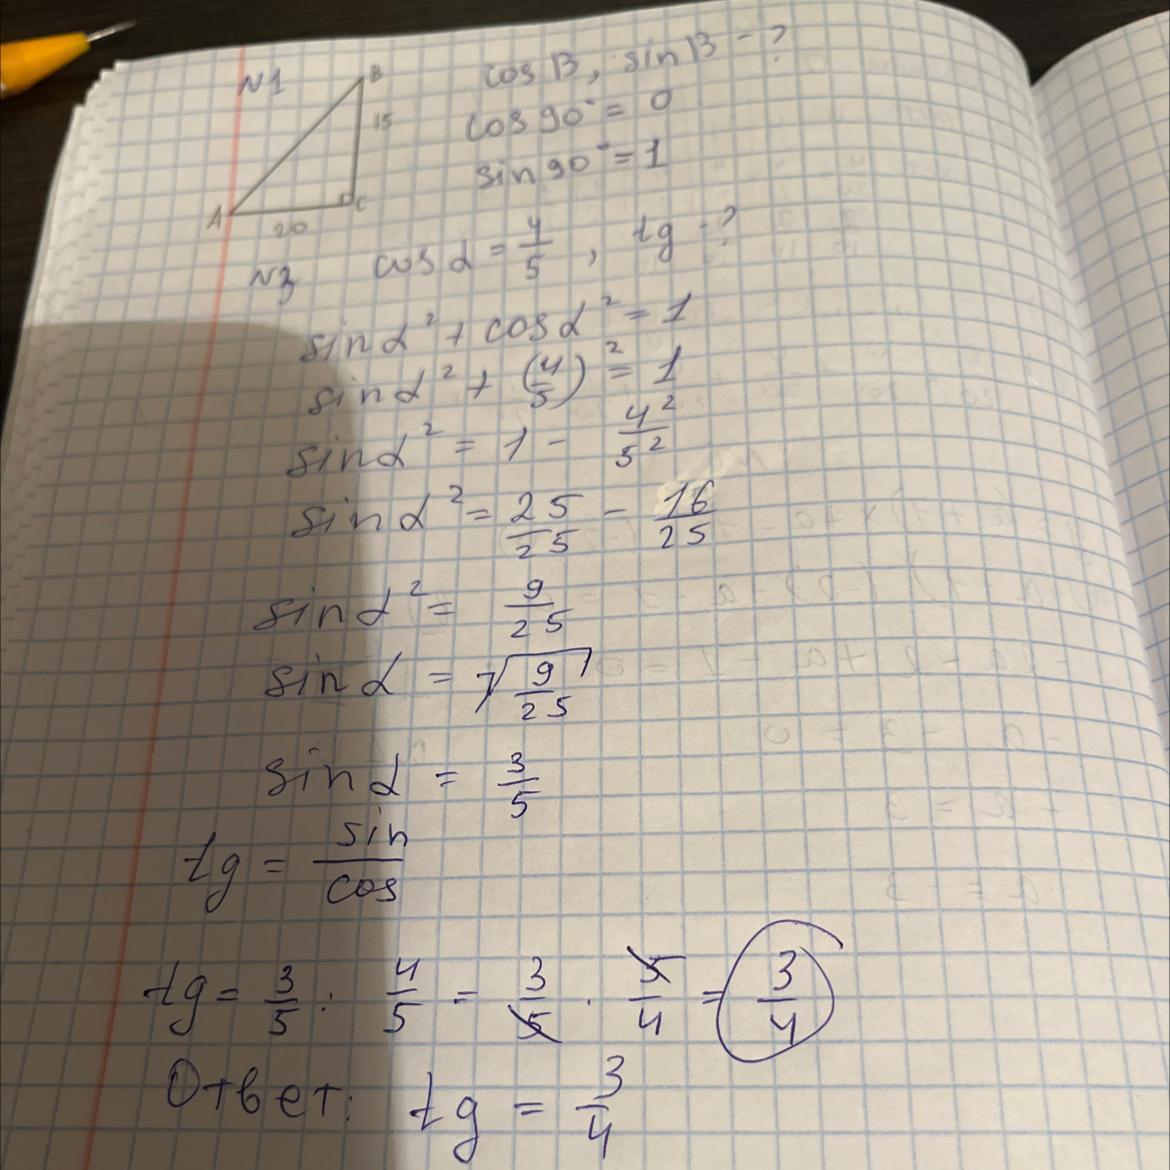 N1
B
15
A
20
C
cos B, sin B - ?
cos 90° = 0
sin 90° = 1
N3 cos α = 4/5, tg - ?
sin α² + cos α² = 1
sin α² + (4/5)² = 1
sin α² = 1 - 4²/5²
sin α² = 25/25 - 16/25
sin α² = 9/25
sin α = √(9/25)
sin α = 3/5
tg = sin/cos
tg = 3/5 : 4/5 = 3/5 · 5/4 = 3/4
Ответ: tg = 3/4